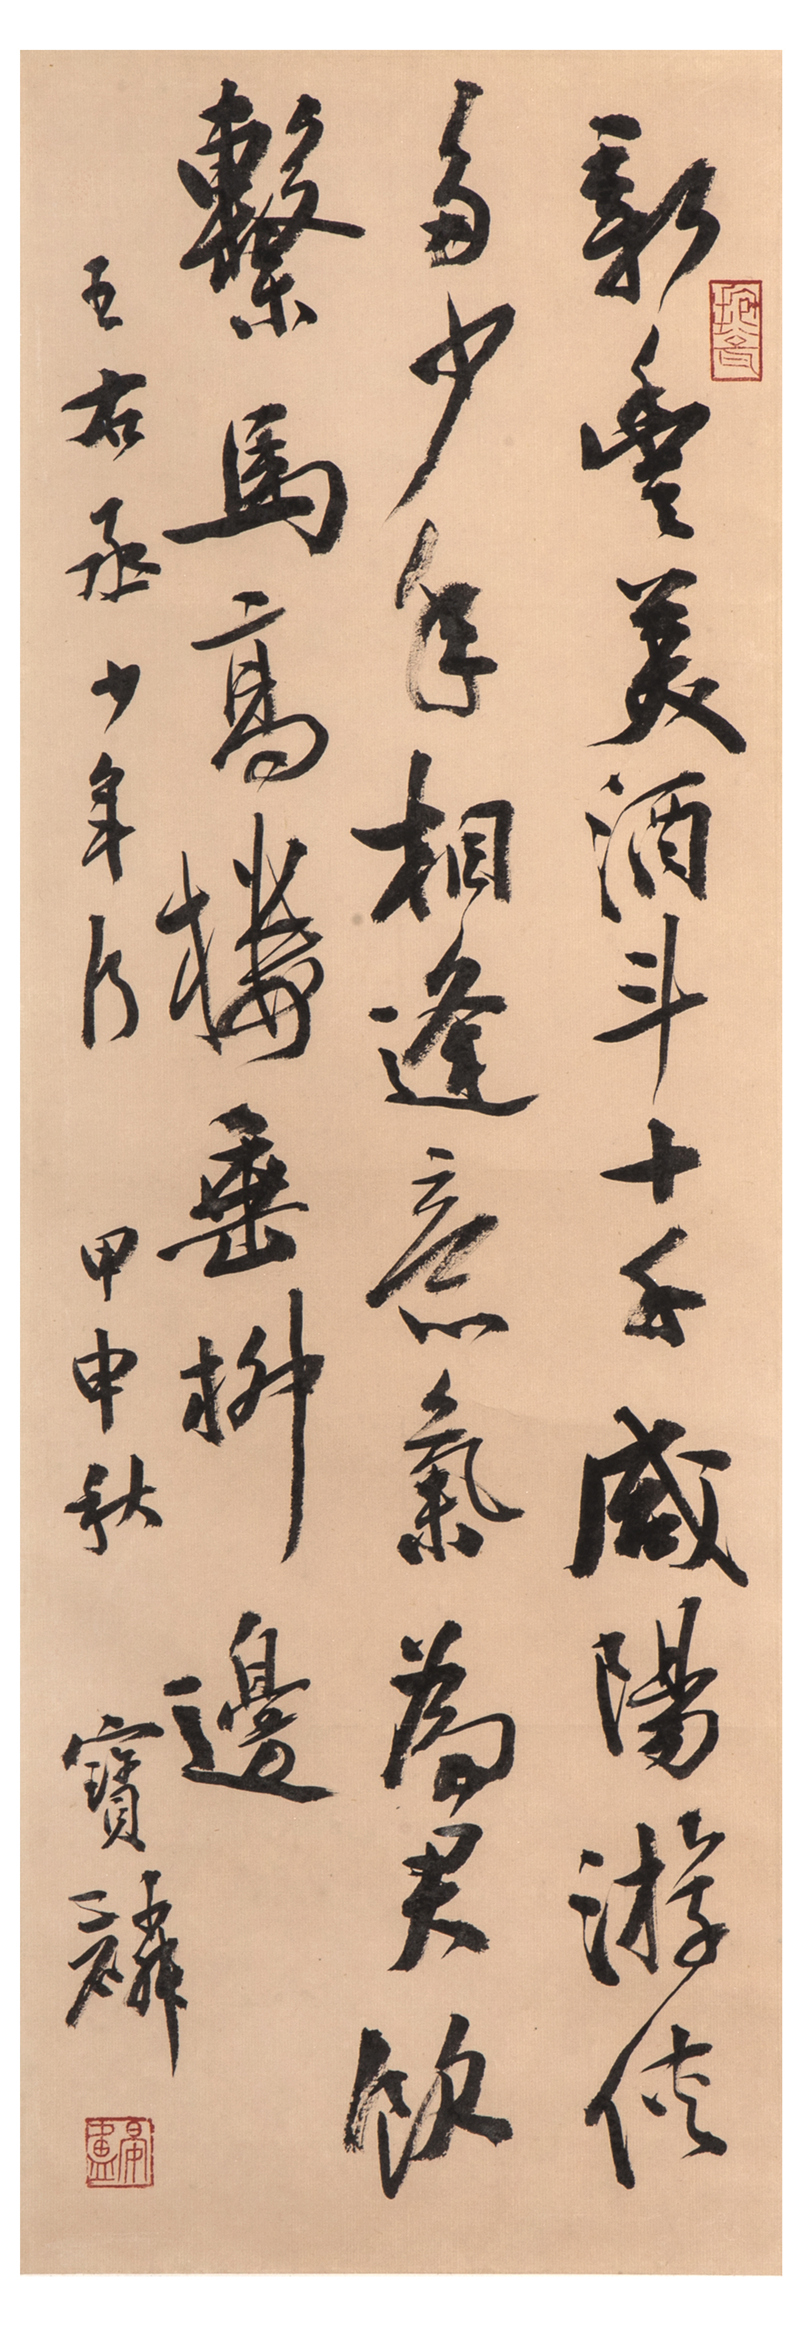 新豐美酒斗十千咸陽游俠
多少年相逢意氣為君飲
繫馬高樓垂柳邊
王右丞少年行 甲申秋 寶麟